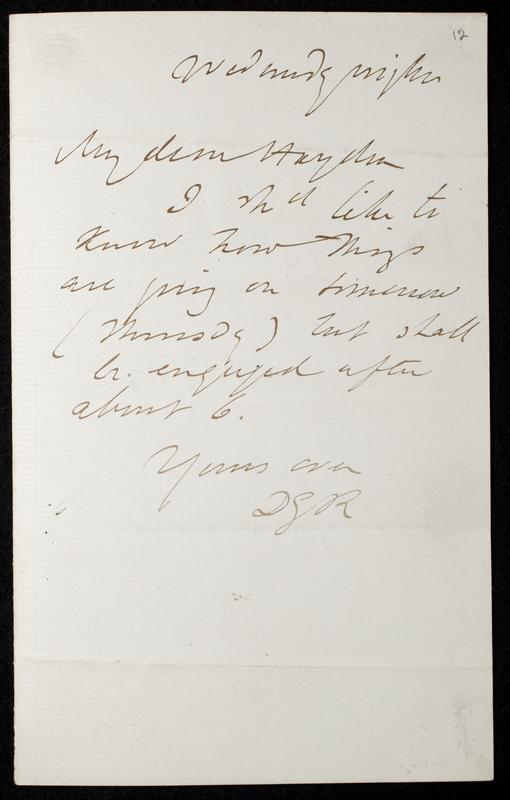 12
Wednesday night
My dear Haydon
I shd like to
know how things
are going on tomorrow
(Thursday) but shall
be engaged after
about 6.
Yours ever
DGR